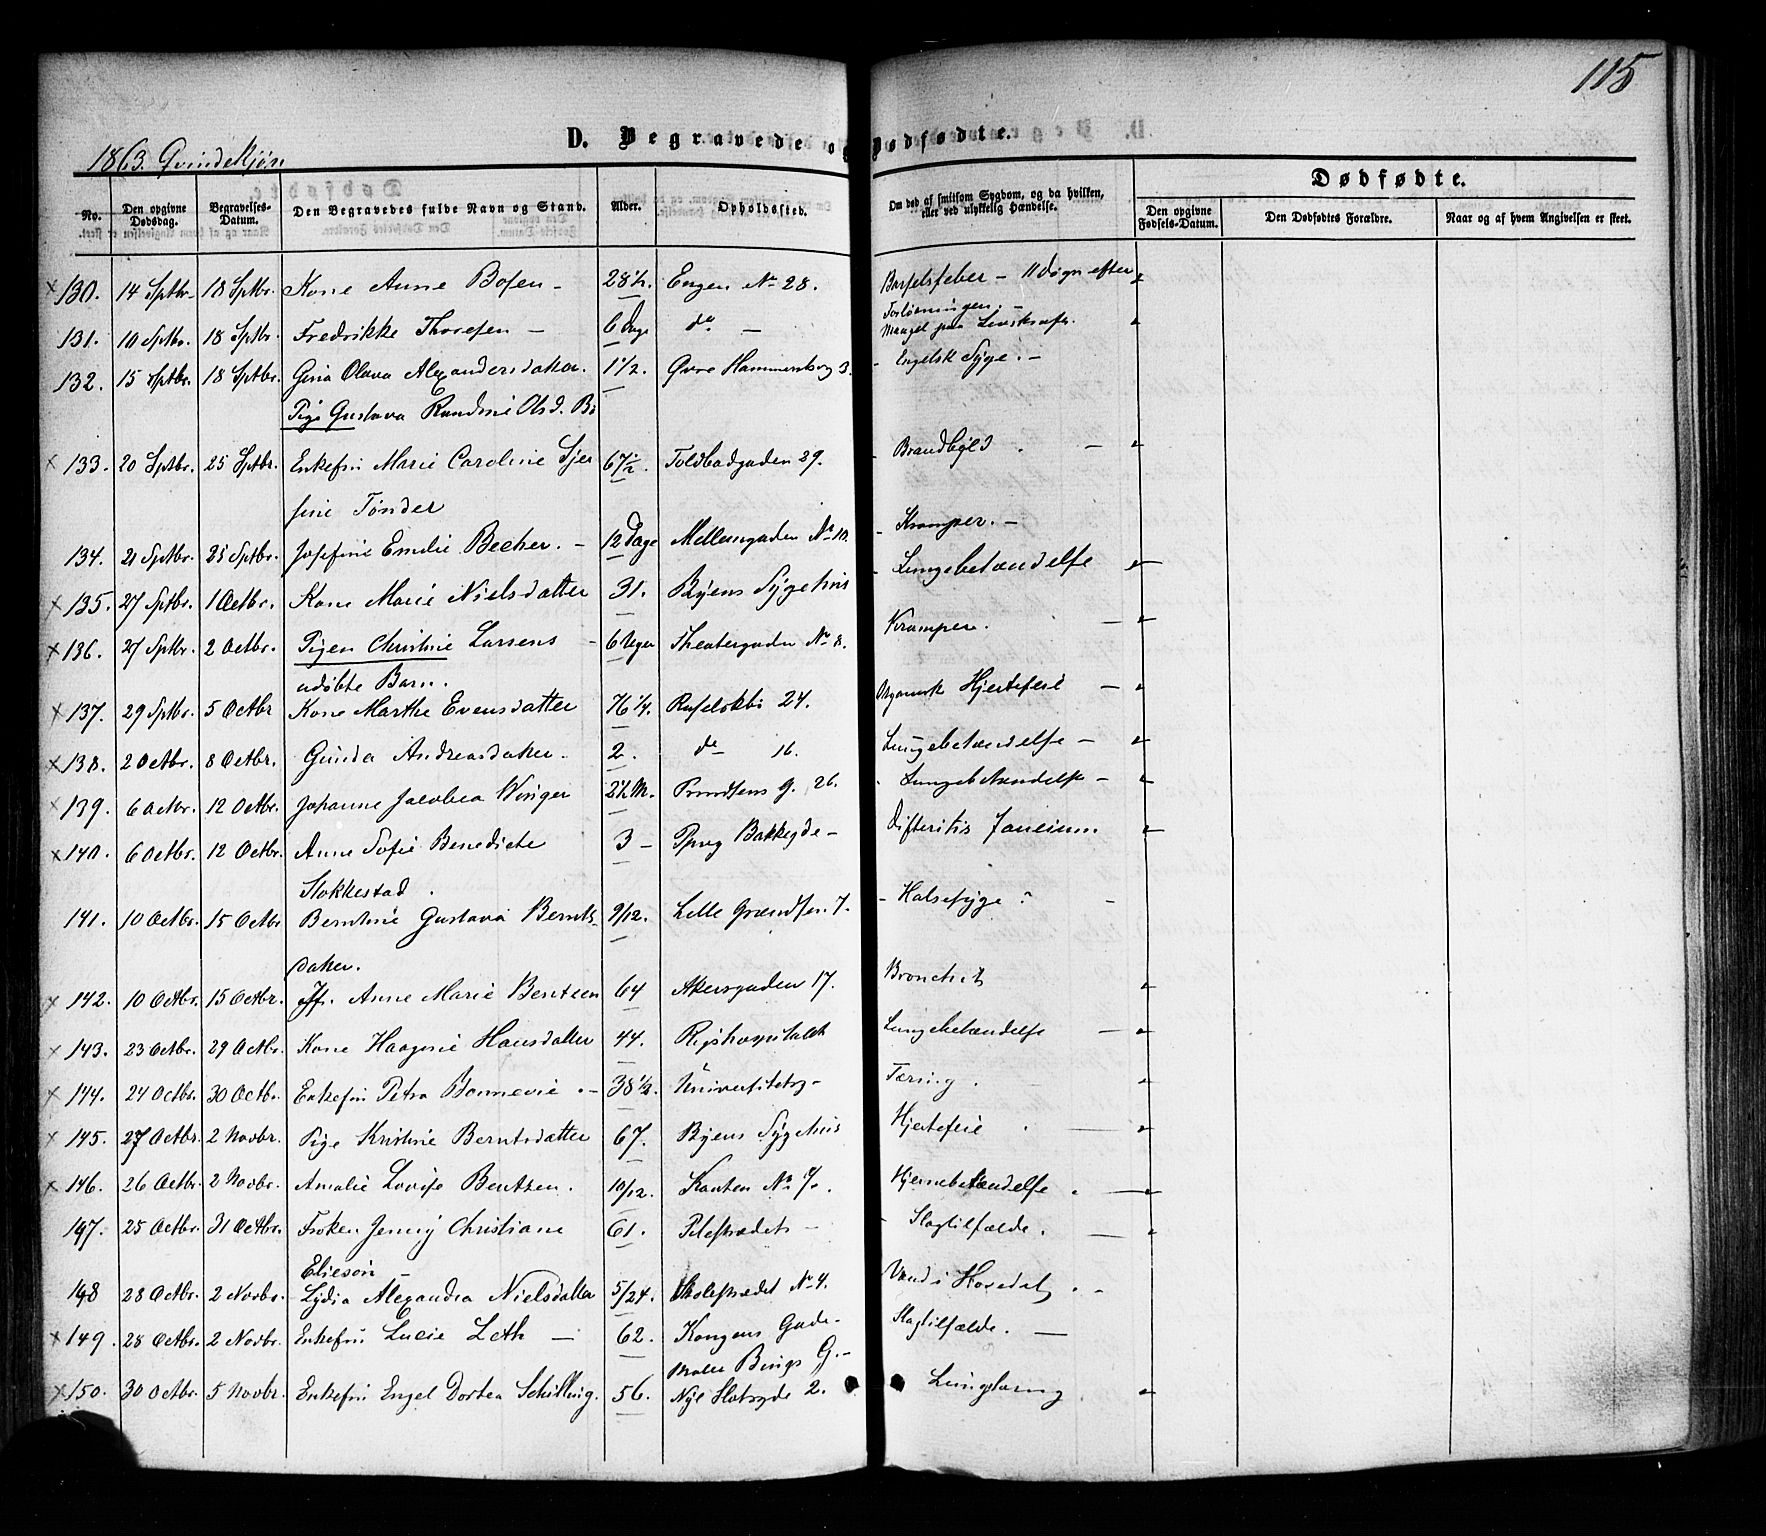 115
D. Begravede og Dødfødte.
1863. Qvindekjøn
Dødfødte.
No. Den opgivne Dødsdag. Begravelses-Datum. Den Begravedes fulde Navn og Stand. Alder. Opholdssted. Om død af smitsom Sygdom, og da hvilken, eller ved ulykkelig Hændelse. Den opgivne Fødsels-Datum. Den Dødfødtes Forældre. Naar og af hvem Angivelsen er skeet.
130. 14 Sptbr. 18 Sptbr. Kone Anne Bosen 28½. Engen No 28. Barselsfeber – 11 Døgn efter
Forløsningen.
131. 10 Sptbr. 18 Sptbr. Fredrikke Thoresen 6 Dage do Mangel paa Livskraft.
132. 15 Sptbr. 18 Sptbr. Gina Olava Alexandersdatter. 1½. Øvre Hammersborg 3. Engelsk Syge.
Pige Gustava Randine Olsd. B
133. 20 Sptbr. 25 Sptbr. Enkefru Marie Caroline 67½. Toldbodgaden 29. Brandbyld
Tønder
134. 21 Sptbr. 25 Sptbr. Josefine Emilie Becher. 12 Dage Mellemgaden No 10. Kramper.
135. 27 Sptbr. 1 Octbr. Kone Marie Nielsdatter 31. Byens Sygehus Lungebetændelse
136. 27 Sptbr. 2 Octbr. Pigen Christine Larsens 6 Uger Theatergaden No 8. Kramper.
udøbte Barn.
137. 29 Sptbr. 5 Octbr Kone Marthe Evensdatter 76¼. Ruseløkb 24. Organisk Hjertefeil
138. 2 Octbr. 8 Octbr. Gunda Andreasdatter. 2. do 16. Lungebetændelse
139. 6 Octbr. 12 Octbr. Johanne Jacobea Winger 2½ M. Prindsens G. 26. Lungebetændelse
140. 6 Octbr. 12 Octbr. Anne Sofie Benedicte 3 Bakkegde Difteritis Faucium
Stokkestad.
141. 10 Octbr. 15 Octbr Berntine Gustava Bernts- 9/12. Lille Grændsen 7. Halsesyge
datter.
142. 10 Octbr. 15 Octbr. Jfr. Anne Marie Bentzen 64 Akersgaden 17. Bronchit
143. 23 Octbr. 29 Octbr. Kone Haagine Hansdatter 44. Rigshospitalet Lungebetændelse
144. 24 Octbr. 30 Octbr. Enkefru Petra Bonnevie 38½. Universitetsg Tæring
145. 27 Octbr. 2 Novbr. Pige Kristine Berntsdatter 67. Byens Sygehus Hjertefeil
146. 26 Octbr. 2 Novbr. Amalie Lovise Bentzen. 10/12. Kanten No Hjernebetændelse
147. 25 Octbr. 31 Octbr. Frøken Jenny Christiane 61. Pilestrædet Slagtilfælde.
Elieson
148 28 Octbr. 2 Novbr. Lydia Alexandra Nielsdatter 5/24. No 4. Vand i Hovedet
149. 28 Octbr. 2 Novbr. Enkefru Lucie Leth 62. Kongens Gade Slagtilfælde.
Møller Bings G.
150. 30 Octbr. 5 Novbr. Enkefru Engel Dortea Schilling. 56. Nye Slotsgde 2. Lungetæring